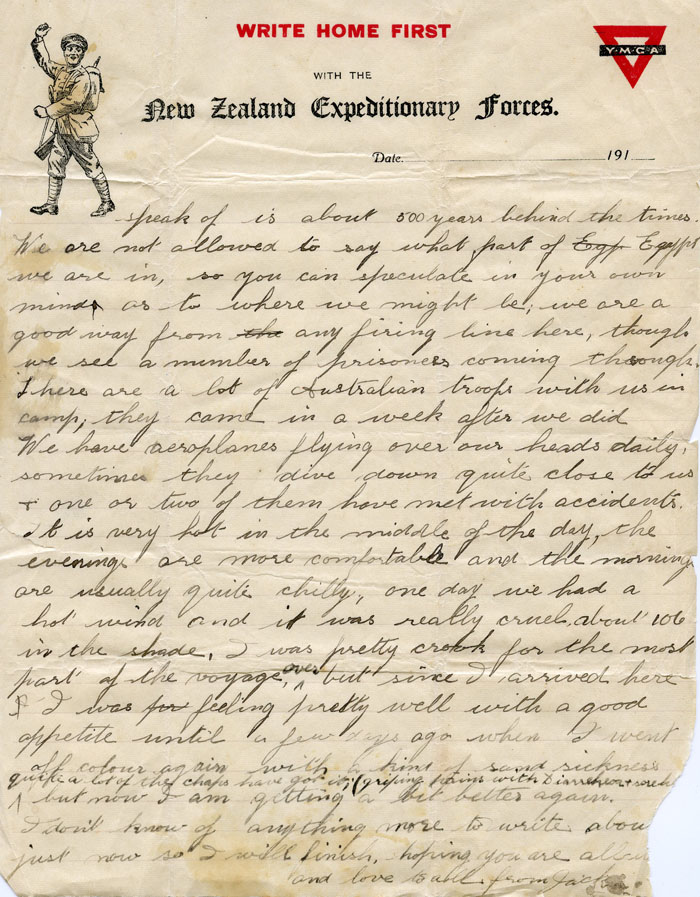 WRITE HOME FIRST
Y·M·C·A
WITH THE
New Zealand Expeditionary Forces.
Date 191
speak of is about 500 years behind the times.
We are not allowed to say what part of Egp Egypt
we are in, so you can speculate in your own
minds as to where we might be; we are a
good way from the any firing line here, though
we see a number of prisoners coming through.
There are a lot of Australian troops with us in
camp; they came in a week after we did
We have aeroplanes flying over our heads daily,
sometimes they dive down quite close to us
+ one or two of them have met with accidents.
It is very hot in the middle of the day, the
evenings are more comfortable and the morning
are usually quite chilly, one day we had a
hot wind and it was really cruel, about 106
in the shade, I was pretty crook for the most
part of the voyage, over but since I arrived here
I was for feeling pretty well with a good
appetite until a few days ago when I went
off colour again with a kind of sand sickness
quite a lot of the chaps have got it, (griping pains with
but now I am getting a bit better again.
I don't know of anything more to write abou
just now so I will finish, hoping you are all
and love to all from Jack